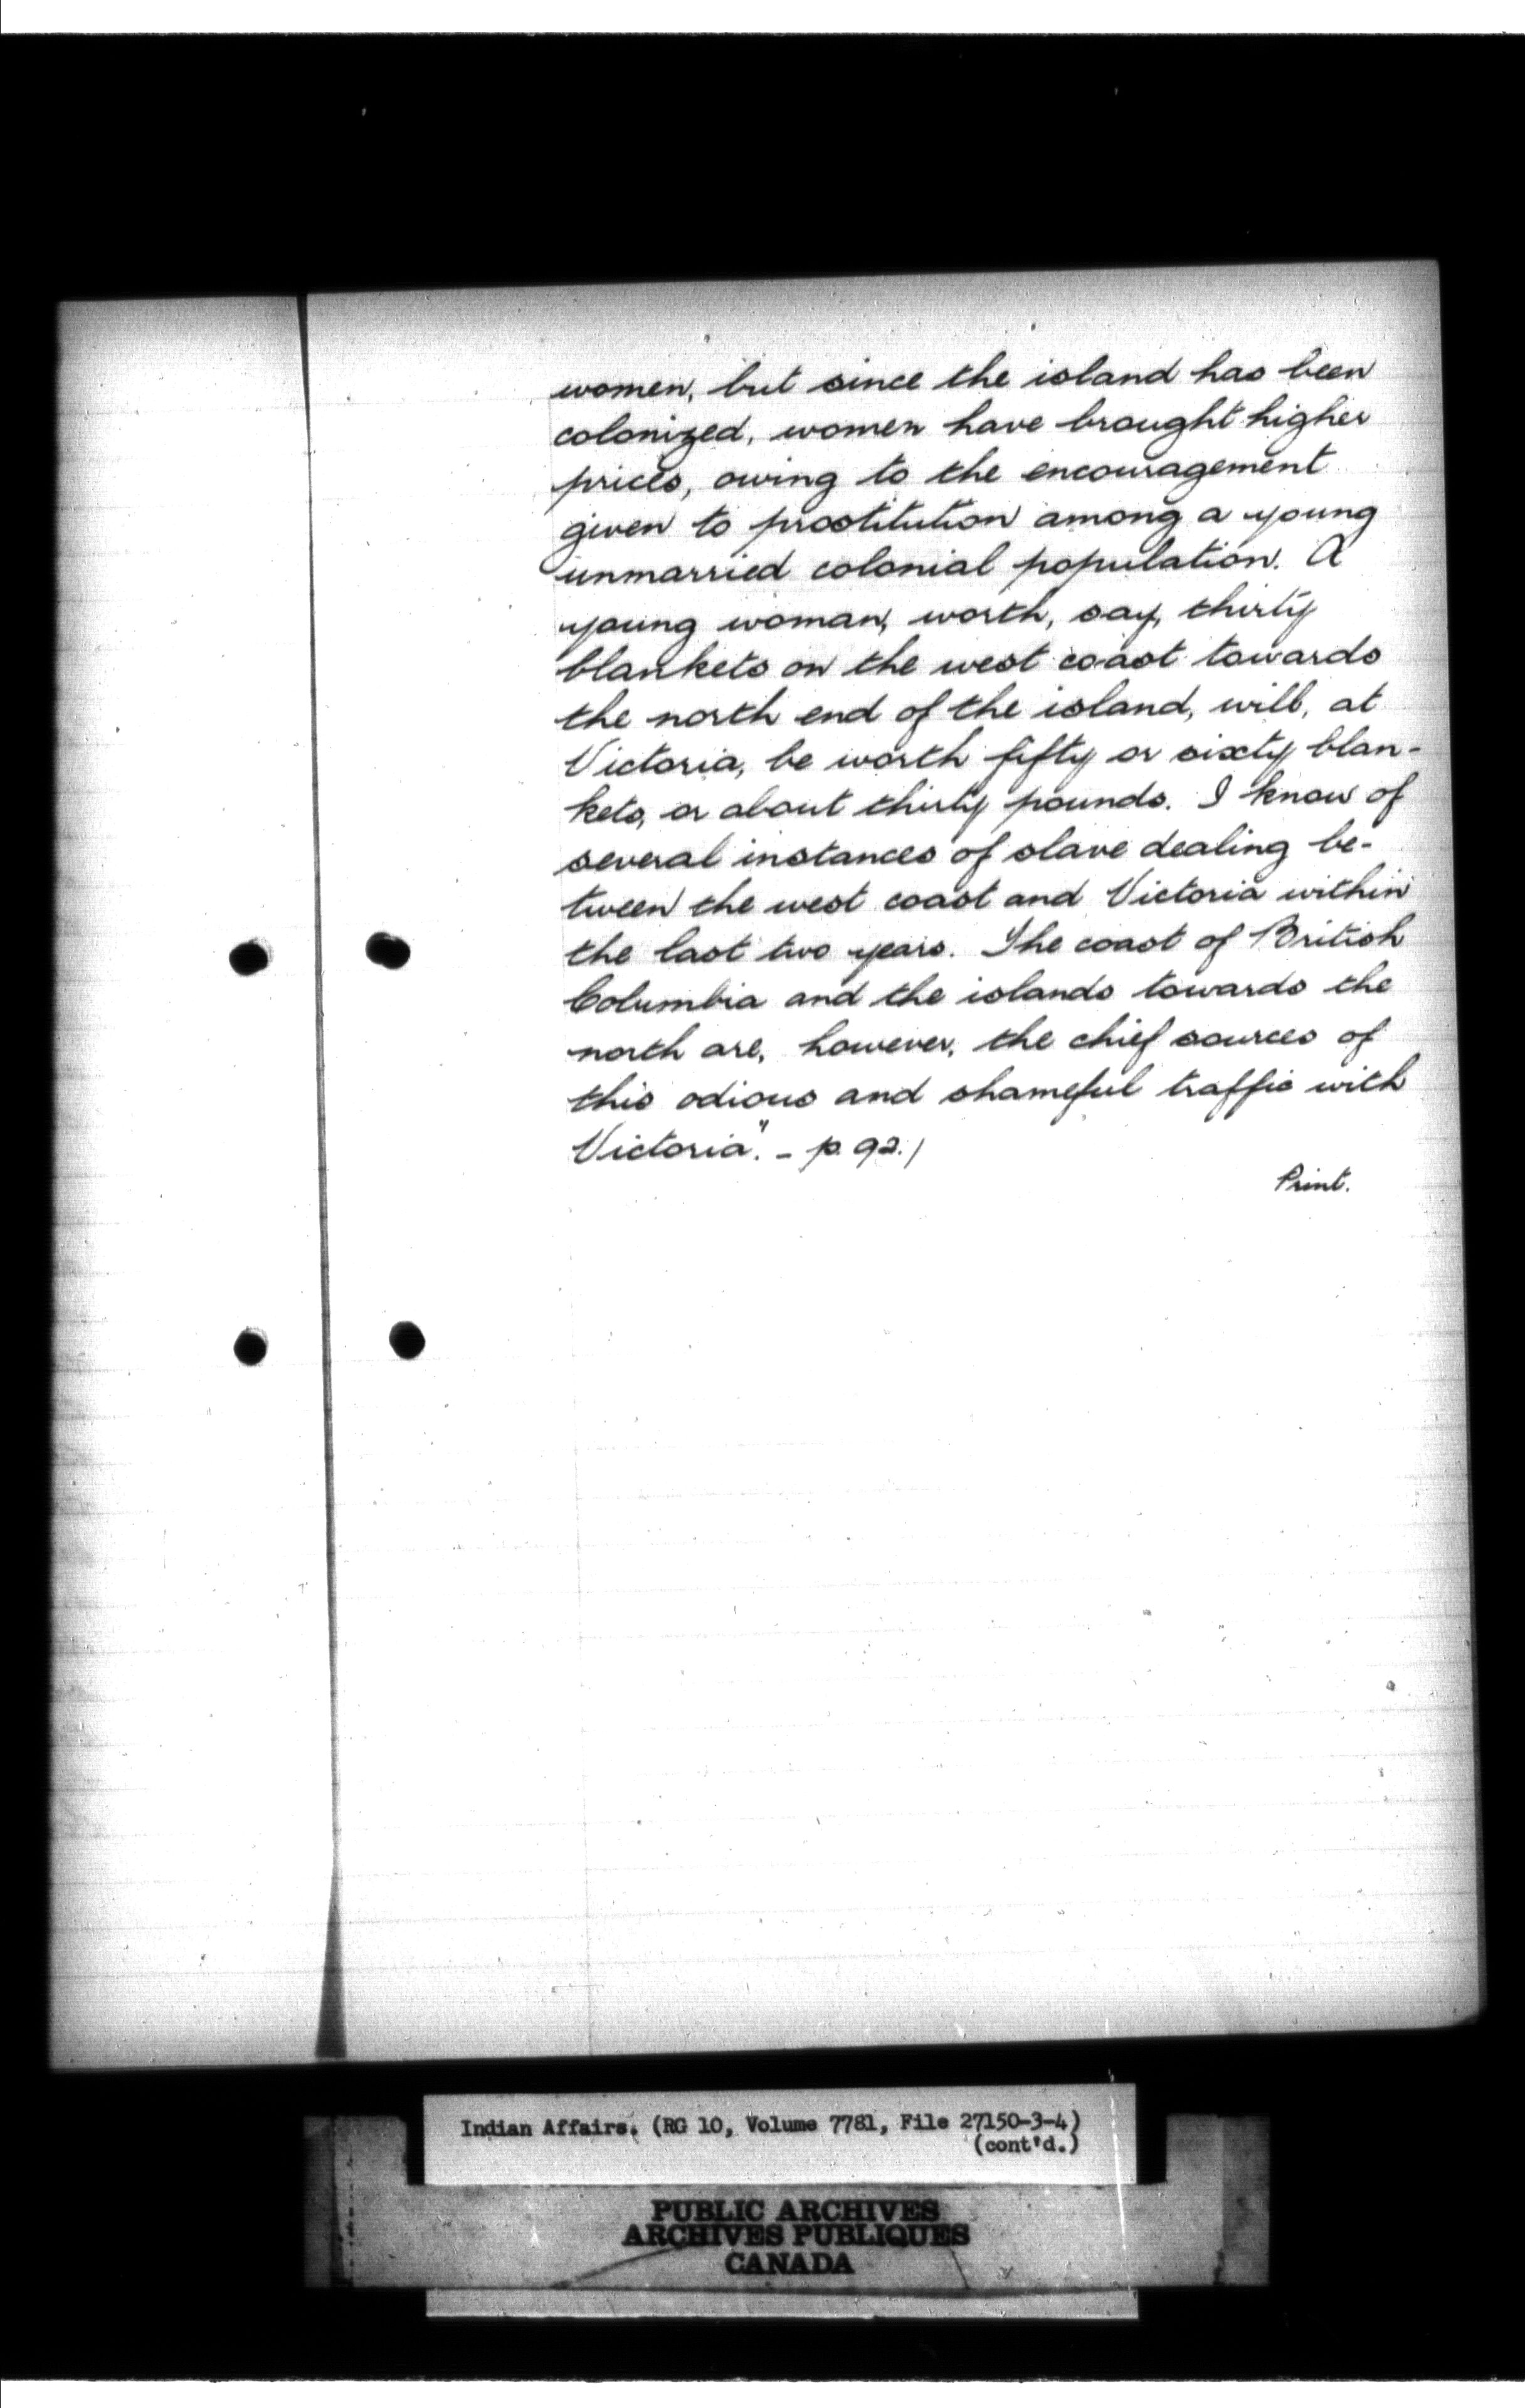 women, but since the island has been
colonized, women have brought higher
prices, owing to the encouragement
given to prostitution among a young
unmarried colonial population. A
young woman, worth, say, thirty
blankets on the west coast towards
the north end of the island, will, at
Victoria, be worth fifty or sixty blan-
kets, or about thirty pounds. I know of
several instances of slave dealing be-
tween the west coast and Victoria within
the last two years. The coast of British
Columbia and the islands towards the
north are, however, the chief sources of
this odious and shameful traffic with
Victoria." - p. 92.)
Print.
Indian Affairs. (RG 10, Volume 7781, File 27150-3-4)
(cont'd.)
PUBLIC ARCHIVES
ARCHIVES PUBLIQUES
CANADA